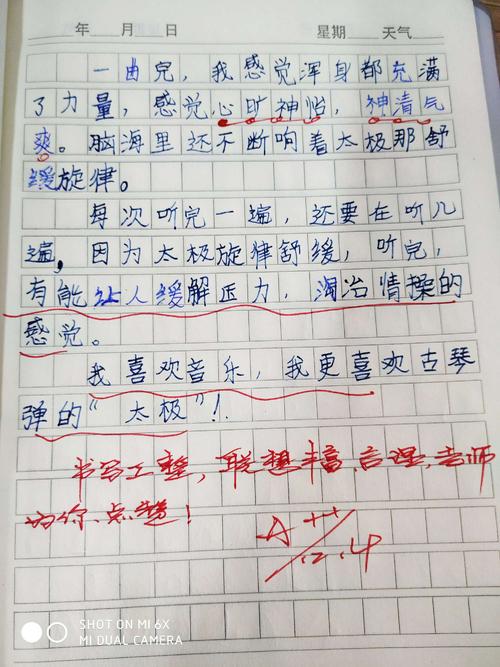 年 月 日 星期 天气
一曲完，我感觉浑身都充满
了力量，感觉心旷神怡，神清气
爽。脑海里还不断响着太极那舒
缓旋律。
每次听完一遍，还要在听几
遍，因为太极旋律舒缓，听完，
有能让人缓解压力，淘冶情操的
感觉。
我喜欢音乐，我更喜欢古琴
弹的“太极”！
书写工整，联想丰富、合理，老师
为你点赞！
A++
12.4
SHOT ON MI 6X
MI DUAL CAMERA